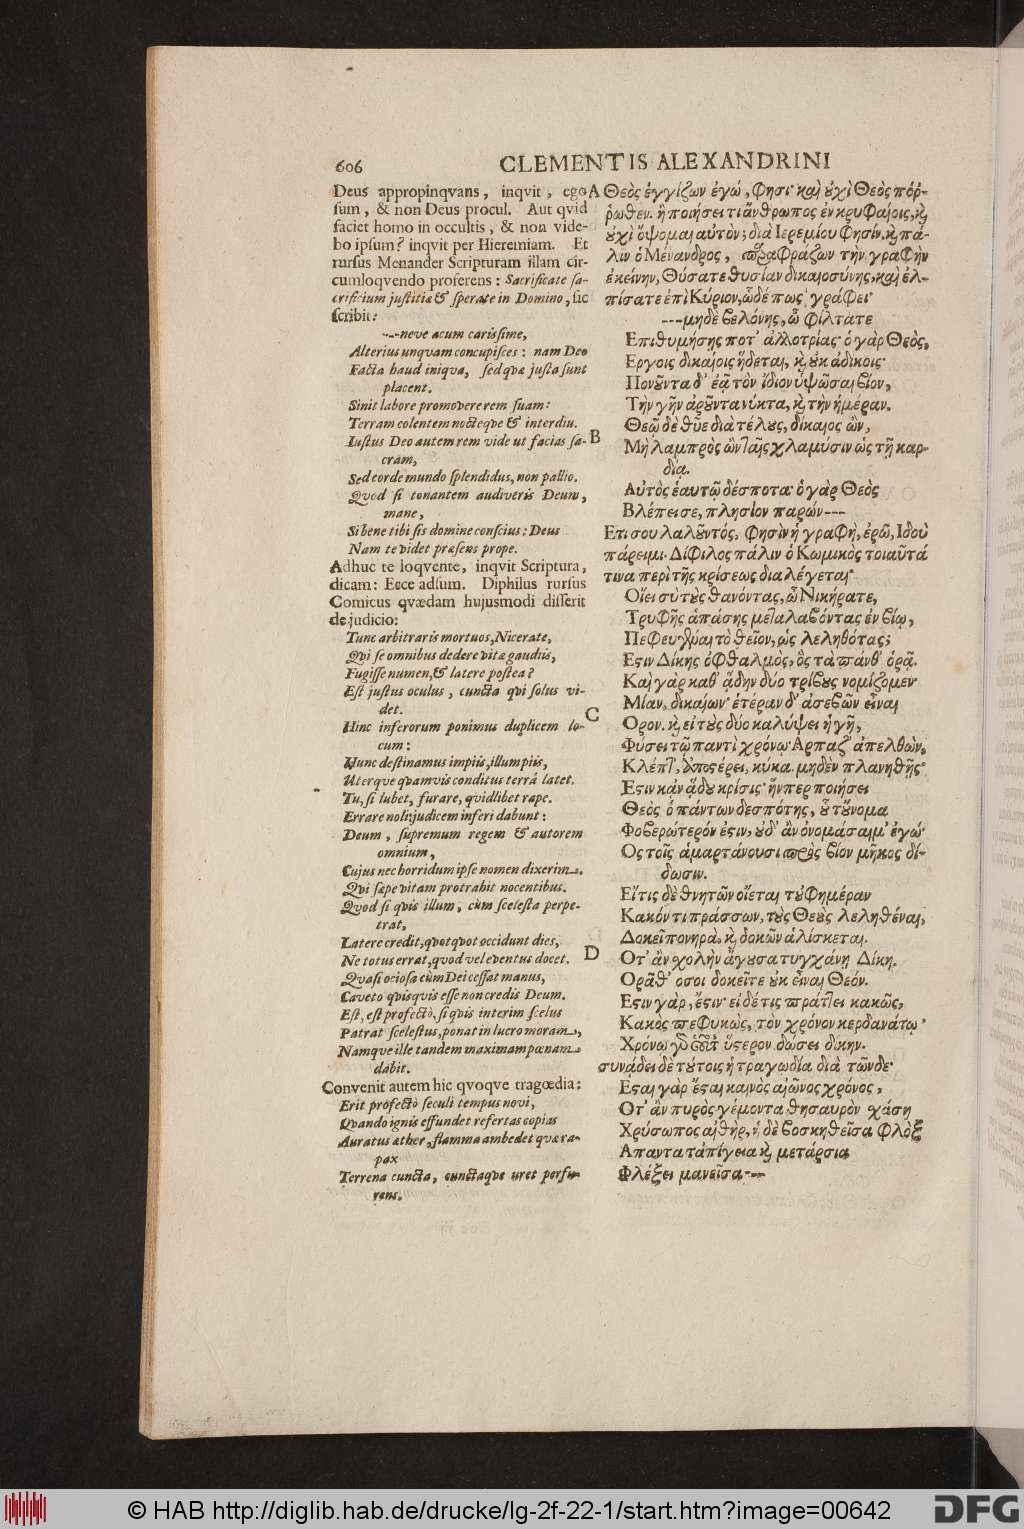 606
CLEMENTIS ALEXANDRINI
Deus appropinqvans, inqvit, ego
sum, & non Deus procul. Aut qvid
faciet homo in occultis, & non vide-
bo ipsum? inqvit per Hieremiam. Et
rursus Menander Scripturam illam cir-
cumloqvendo proferens: Sacrificate sa-
crificium justitiæ & sperate in Domino, sic
scribit:
---neve acum carissime,
Alterius unqvam concupisces: nam Deo
Facta haud iniqva, sed qvæ justa sunt
placent.
Sinit labore promovere rem suam:
Terram colentem nocteqve & interdiu.
Iustus Deo autem rem vide ut facias sa-
cram,
Sed corde mundo splendidus, non pallio.
Qvod si tonantem audiveris Deum,
mane,
Si bene tibi sis domine conscius: Deus
Nam te videt præsens prope.
Adhuc te loqvente, inqvit Scriptura,
dicam: Ecce adsum. Diphilus rursus
Comicus qvædam hujusmodi disserit
de judicio:
Tunc arbitraris mortuos, Nicerate,
Qvi se omnibus dedere vitæ gaudiis,
Fugisse numen, & latere postea?
Est justus oculus, cuncta qvi solus vi-
det.
Hinc inferorum ponimus duplicem lo-
cum:
Hunc destinamus impiis, illum piis,
Uterque qvamvis conditus terrâ latet.
Tu, si lubet, furare, quidlibet rape.
Errare noli: judicem inferi dabunt:
Deum, supremum regem & autorem
omnium,
Cujus nec horridum ipse nomen dixerim.
Qvi sæpe vitam protrahit nocentibus.
Quod si qvis illum, cùm scelesta perpe-
trat,
Latere credit, qvotqvot occidunt dies,
Ne totus errat, quod vel eventus docet.
Qvasi ociosa cùm Dei cessat manus,
Caveto qvisqvis esse non credis Deum.
Est, est profectò, si qvis interim scelus
Patrat scelestus, ponat in lucro moram,
Namque ille tandem maximam pœnam
dabit.
Convenit autem hic qvoqve tragœdia:
Erit profectò seculi tempus novi,
Qvando ignis effundet refertas copias
Auratus æther, flamma ambedet qvæ ra-
pax
Terrena cuncta, cunctaqve uret persu-
rens.
A
B
C
D
Θεὸς ἐγγίζων ἐγώ, φησι· καὶ ȣ̓χὶ Θεὸς πόῤ-
ῥωθεν. ἢ ποιήσει τι ἄνθρωπος ἐν κρυφαίοις, κ̀
ȣ̓χὶ ὄψομαι αὐτὸν; διὰ Ιερεμίου φησίν. κ̀ πά-
λιν ὁ Μένανδρος, παραφράζων τὴν γραφὴν
ἐκείνην, Θύσατε θυσίαν δικαιοσύνης, καὶ ἐλ-
πίσατε ἐπὶ Κύριον, ὧδέ πως γράφει·
---μηδὲ βελόνης, ὦ φίλτατε
Επιθυμήσῃς ποτ' ἀλλοτρίας· ὁ γὰρ Θεὸς,
Εργοις δικαίοις ἥδεται, κ̀ ȣ̓κ ἀδίκοις·
Πονȣ͂ντα δ' ἐᾷ τὸν ἴδιον ὑψῶσαι βίον,
Τὴν γῆν ἀρȣ͂ντα νύκτα, κ̀ τὴν ἡμέραν.
Θεῷ δὲ θύε διὰ τέλους, δίκαιος ὢν,
Μὴ λαμπρὸς ὢν ταῖς χλαμύσιν ὡς τῇ καρ-
δίᾳ.
Αὐτὸς ἑαυτῷ δέσποτα· ὁ γὰρ Θεὸς
Βλέπει σε, πλησίον παρών---
Ετι σου λαλȣ͂ντός, φησὶν ἡ γραφὴ, ἐρῶ, Ιδοὺ
πάρειμι. Δίφιλος πάλιν ὁ Κωμικὸς τοιαῦτά
τινα περὶ τῆς κρίσεως διαλέγεται·
Οἴει σὺ τȣ̀ς θανόντας, ὦ Νικήρατε,
Τρυφῆς ἁπάσης μεταλαβόντας ἐν βίῳ,
Πεφευγέναι τὸ θεῖον, ὡς λεληθότας;
Εστιν Δίκης ὀφθαλμὸς, ὃς τὰ πάνθ' ὁρᾷ.
Καὶ γὰρ καθ' ᾅδην δύο τρίβȣς νομίζομεν·
Μίαν, δικαίων· ἑτέραν δ' ἀσεβῶν εἶναι
Ορον. κ̀ εἰ τȣ̀ς δύο καλύψει ἡ γῆ,
Φύσει τῷ παντὶ χρόνῳ· Αρπαζ' ἀπελθὼν,
Κλέπτ', ἀποστέρει, κύκα. μηδὲν πλανηθῇς·
Εστιν κἀν ᾅδȣ κρίσις· ἥνπερ ποιήσει
Θεὸς ὁ πάντων δεσπότης, ȣ̔͂ τȣ̓́νομα
Φοβερώτερόν ἐστιν, ȣ̓δ' ἂν ὀνομάσαιμ' ἐγώ·
Ος τοῖς ἁμαρτάνουσι πρὸς βίον μῆκος δί-
δωσιν.
Εἴ τις δὲ θνητῶν οἴεται τȣ̓φημέραν
Κακόν τι πράσσων, τȣ̀ς Θεȣ̀ς λεληθέναι,
Δοκεῖ πονηρὰ, κ̀ δοκῶν ἁλίσκεται.
Οτ' ἂν χολὴν ἄγουσα τυγχάνῃ Δίκη.
Ορᾶθ' οσοι δοκεῖτε ȣ̓κ εἶναι Θεόν.
Εστιν γὰρ, ἔστιν· εἰ δέ τις πράττει κακῶς,
Κακὸς πεφυκὼς, τὸν χρόνον κερδανάτω·
Χρόνῳ γὰρ οὗτος ὕστερον δώσει δίκην.
συνᾴδει δὲ τȣ́τοις ἡ τραγῳδία διὰ τῶνδε·
Εσται γὰρ ἔσται καινὸς αἰῶνος χρόνος,
Οτ' ἂν πυρὸς γέμοντα θησαυρὸν χάσῃ
Χρύσωπος αἰθὴρ, ἡ δὲ βοσκηθεῖσα φλὸξ
Απαντα τἀπίγεια κ̀ μετάρσια
Φλέξει μανεῖσα---
© HAB http://diglib.hab.de/drucke/lg-2f-22-1/start.htm?image=00642
DFG